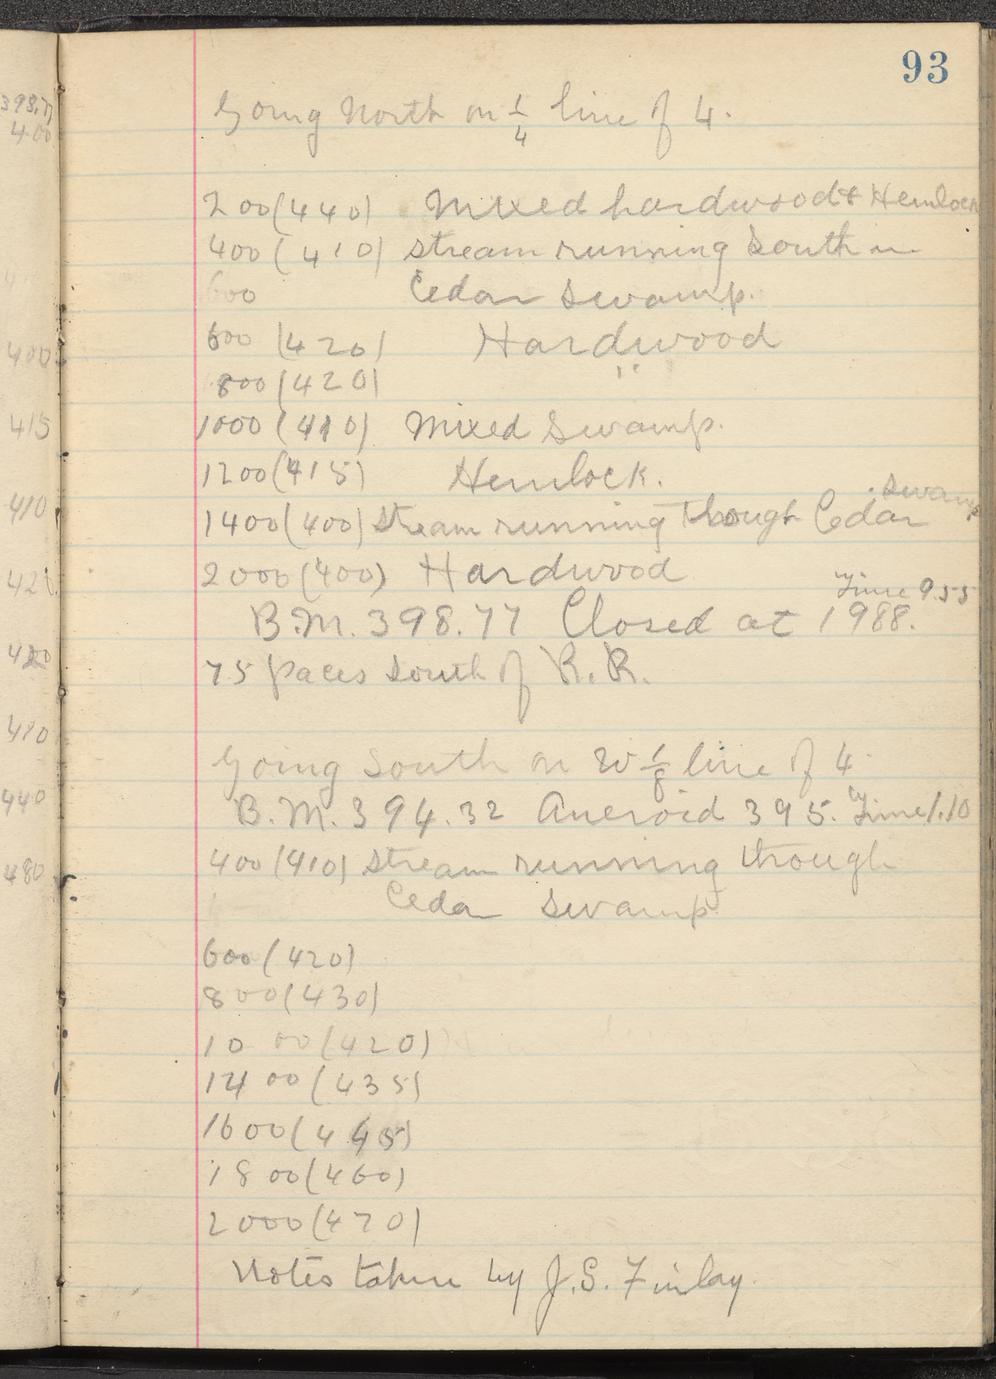 93
Going North on 1/4 line of 4.
200(440) Mixed hardwood & Hemlock
400 (410) stream running South in
600 Cedar Swamp.
600 (420) Hardwood
800(420) "
1000 (410) Mixed Swamp.
1200(415) Hemlock.
1400(400) Stream running though Cedar swamp
2000(400) Hardwood
B.M. 398.77 Closed at 1988. Time 9.55
75 paces South of R.R.
Going South on W 1/8 line of 4.
B.M. 394.32 Aneroid 395. Time 1.10
400(410) Stream running through
Cedar Swamp
600(420)
800(430)
1000(420)
1400(435)
1600(445)
1800(460)
2000(470)
Notes taken by J.S. Finlay.
398.77
400
400
415
410
420
410
440
480